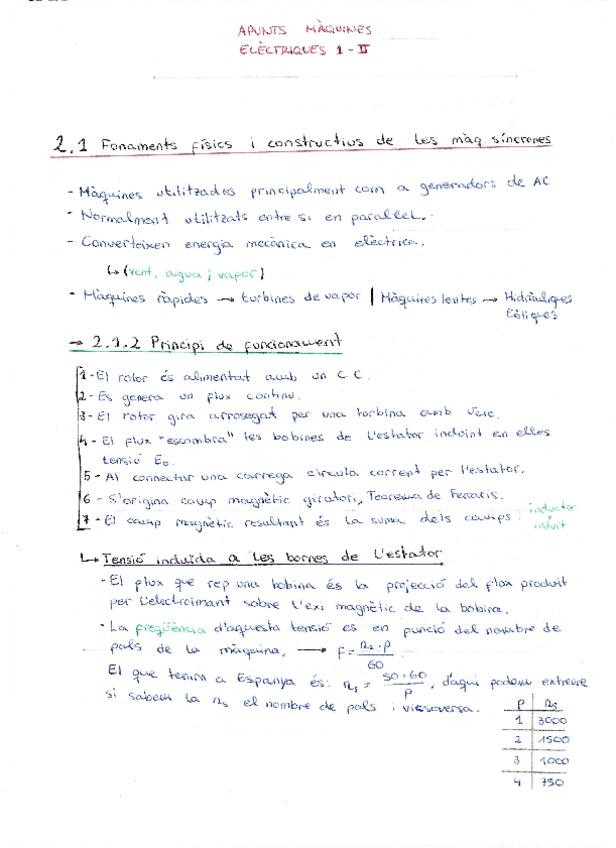 APUNTS MÀQUINES
ELÈCTRIQUES 1 - II
2.1 Fonaments físics i constructius de les màq síncrones
- Màquines utilitzades principalment com a generadors de AC
- Normalment utilitzats entre si en paral·lel.
- Converteixen energia mecànica en elèctrica.
↳ (vent, aigua i vapor)
- Màquines ràpides → turbines de vapor | Màquines lentes → Hidràuliques
Eòliques
→ 2.1.2 Principi de funcionament
1 - El rotor és alimentat amb un C C.
2 - Es genera un flux continu.
3 - El rotor gira arrosegat per una turbina amb v
4 - El flux "escombra" les bobines de l'estator induint en elles
tensió E₀.
5 - Al connectar una carrega circula corrent per l'estator.
6 - S'origina camp magnètic giratori, Teorema de Ferraris.
7 - El camp magnètic resultant és la suma dels camps: inductor
+
induit
↳ Tensió induïda a les bornes de l'estator
· El flux que rep una bobina és la projecció del flux produit
per l'electroimant sobre l'eix magnètic de la bobina.
· La freqüència d'aquesta tensió es en funció del nombre de
pols de la màquina, → F = n₁ · P / 60
El que tenim a Espanya és: n₁ = 50 · 60 / P, d'aqui podem extreure
si sabem la ns el nombre de pols i vissaversa.
P | ns
1 | 3000
2 | 1500
3 | 1000
4 | 750